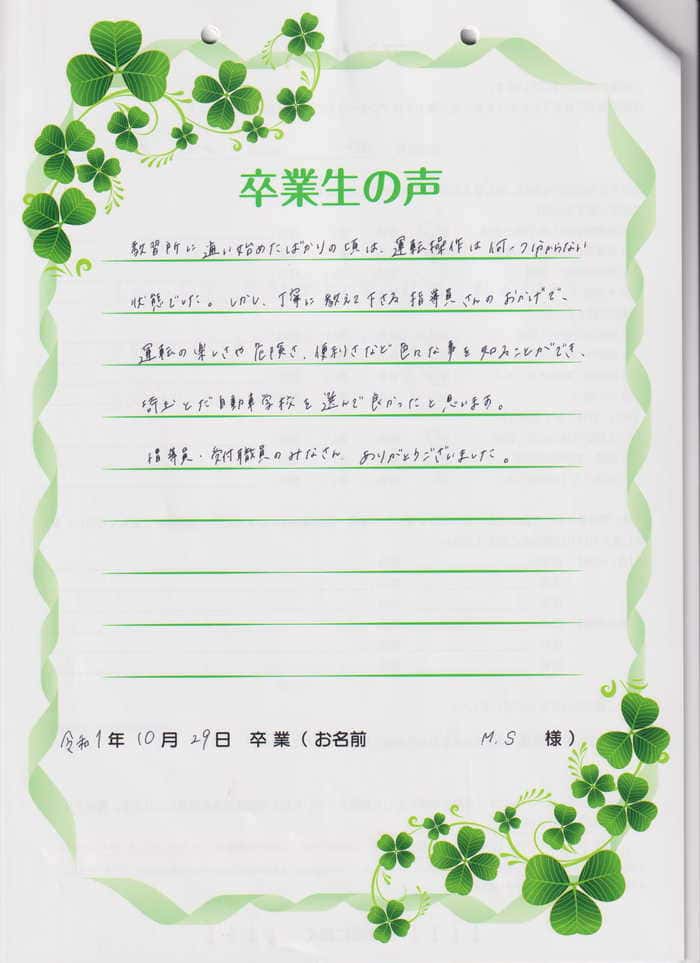 卒業生の声
教習所に通い始めたばかりの頃は、運転操作は何一つ分からない
状態でした。しかし、丁寧に教えて下さる指導員さんのおかげで、
運転の楽しさや危険さ、便利さなど色々な事を知ることができ、
埼玉とだ自動車学校を選んで良かったと思います。
指導員・受付職員のみなさん、ありがとうございました。
令和1年10月29日 卒業(お名前 M.S 様)